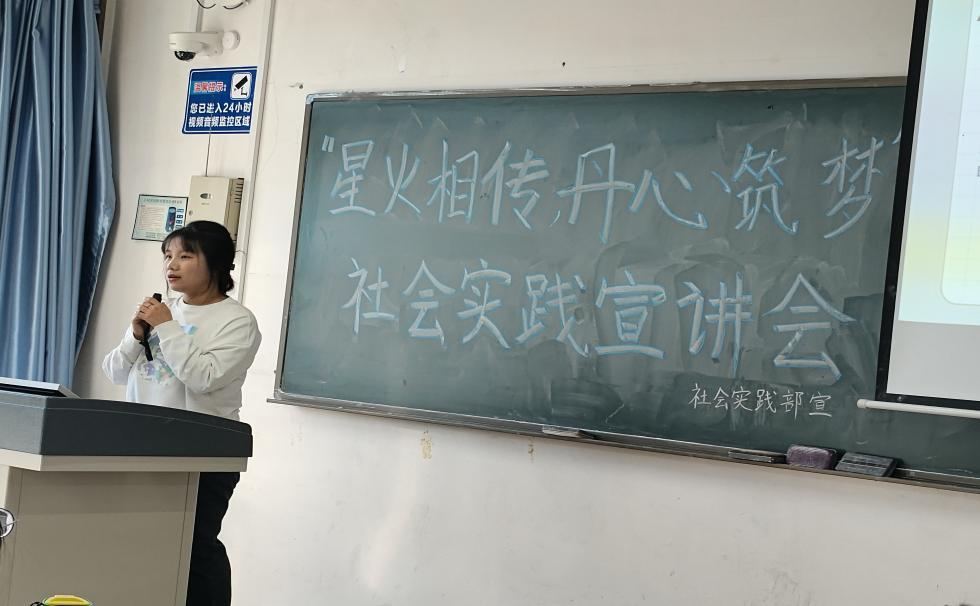 温馨提示:
您已进入24小时
视频音频监控区域
“星火相传,丹心筑梦”
社会实践宣讲会
社会实践部宣